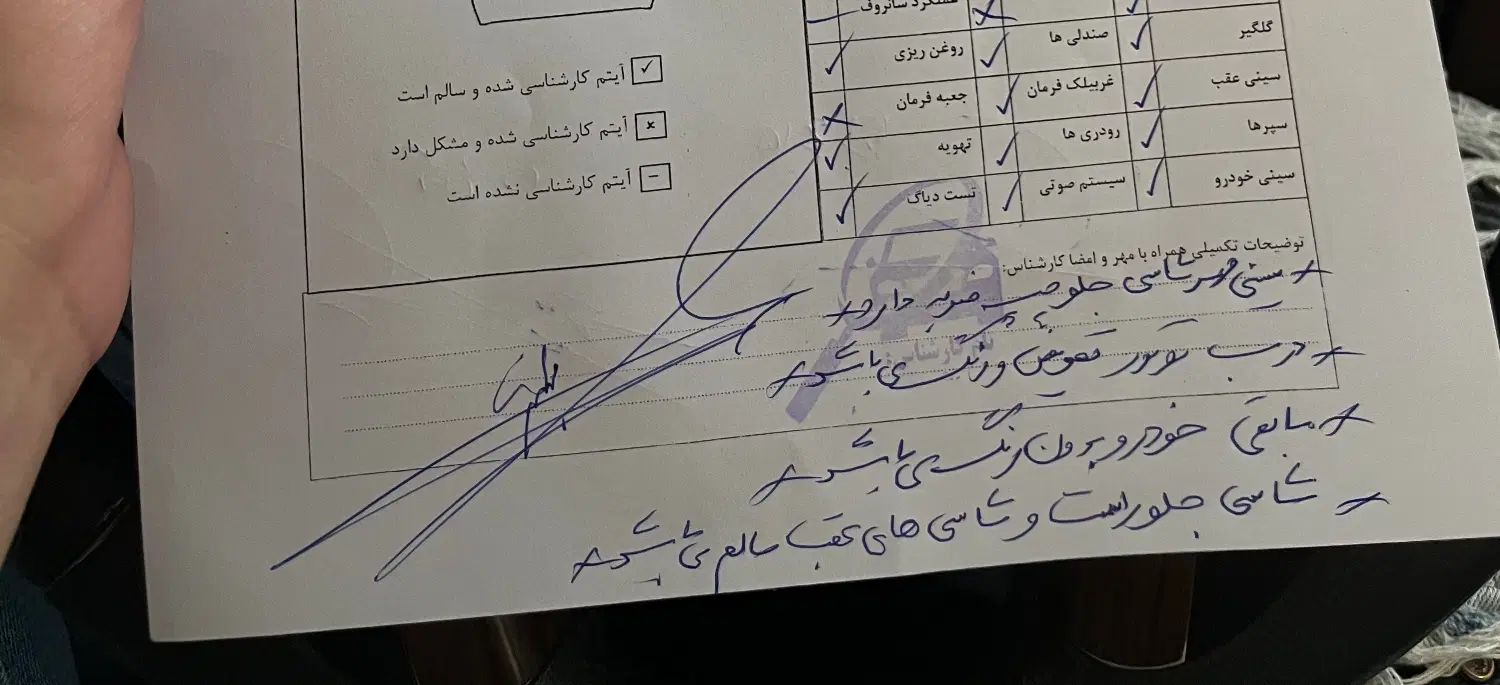 عملکرد سانروف
گلگیر
صندلی ها
روغن ریزی
سینی عقب
غربیلک فرمان
جعبه فرمان
سپرها
رودری ها
تهویه
سینی خودرو
سیستم صوتی
تست دیاگ
✓ آیتم کارشناسی شده و سالم است
× آیتم کارشناسی شده و مشکل دارد
− آیتم کارشناسی نشده است
توضیحات تکمیلی همراه با مهر و امضا کارشناس:
سینی و سرشاسی جلو چپ ضربه دارد
درب موتور تعویض و رنگ می باشد
مابقی خودرو بدون رنگ می باشد
شاسی جلو راست و شاسی های عقب سالم می باشد